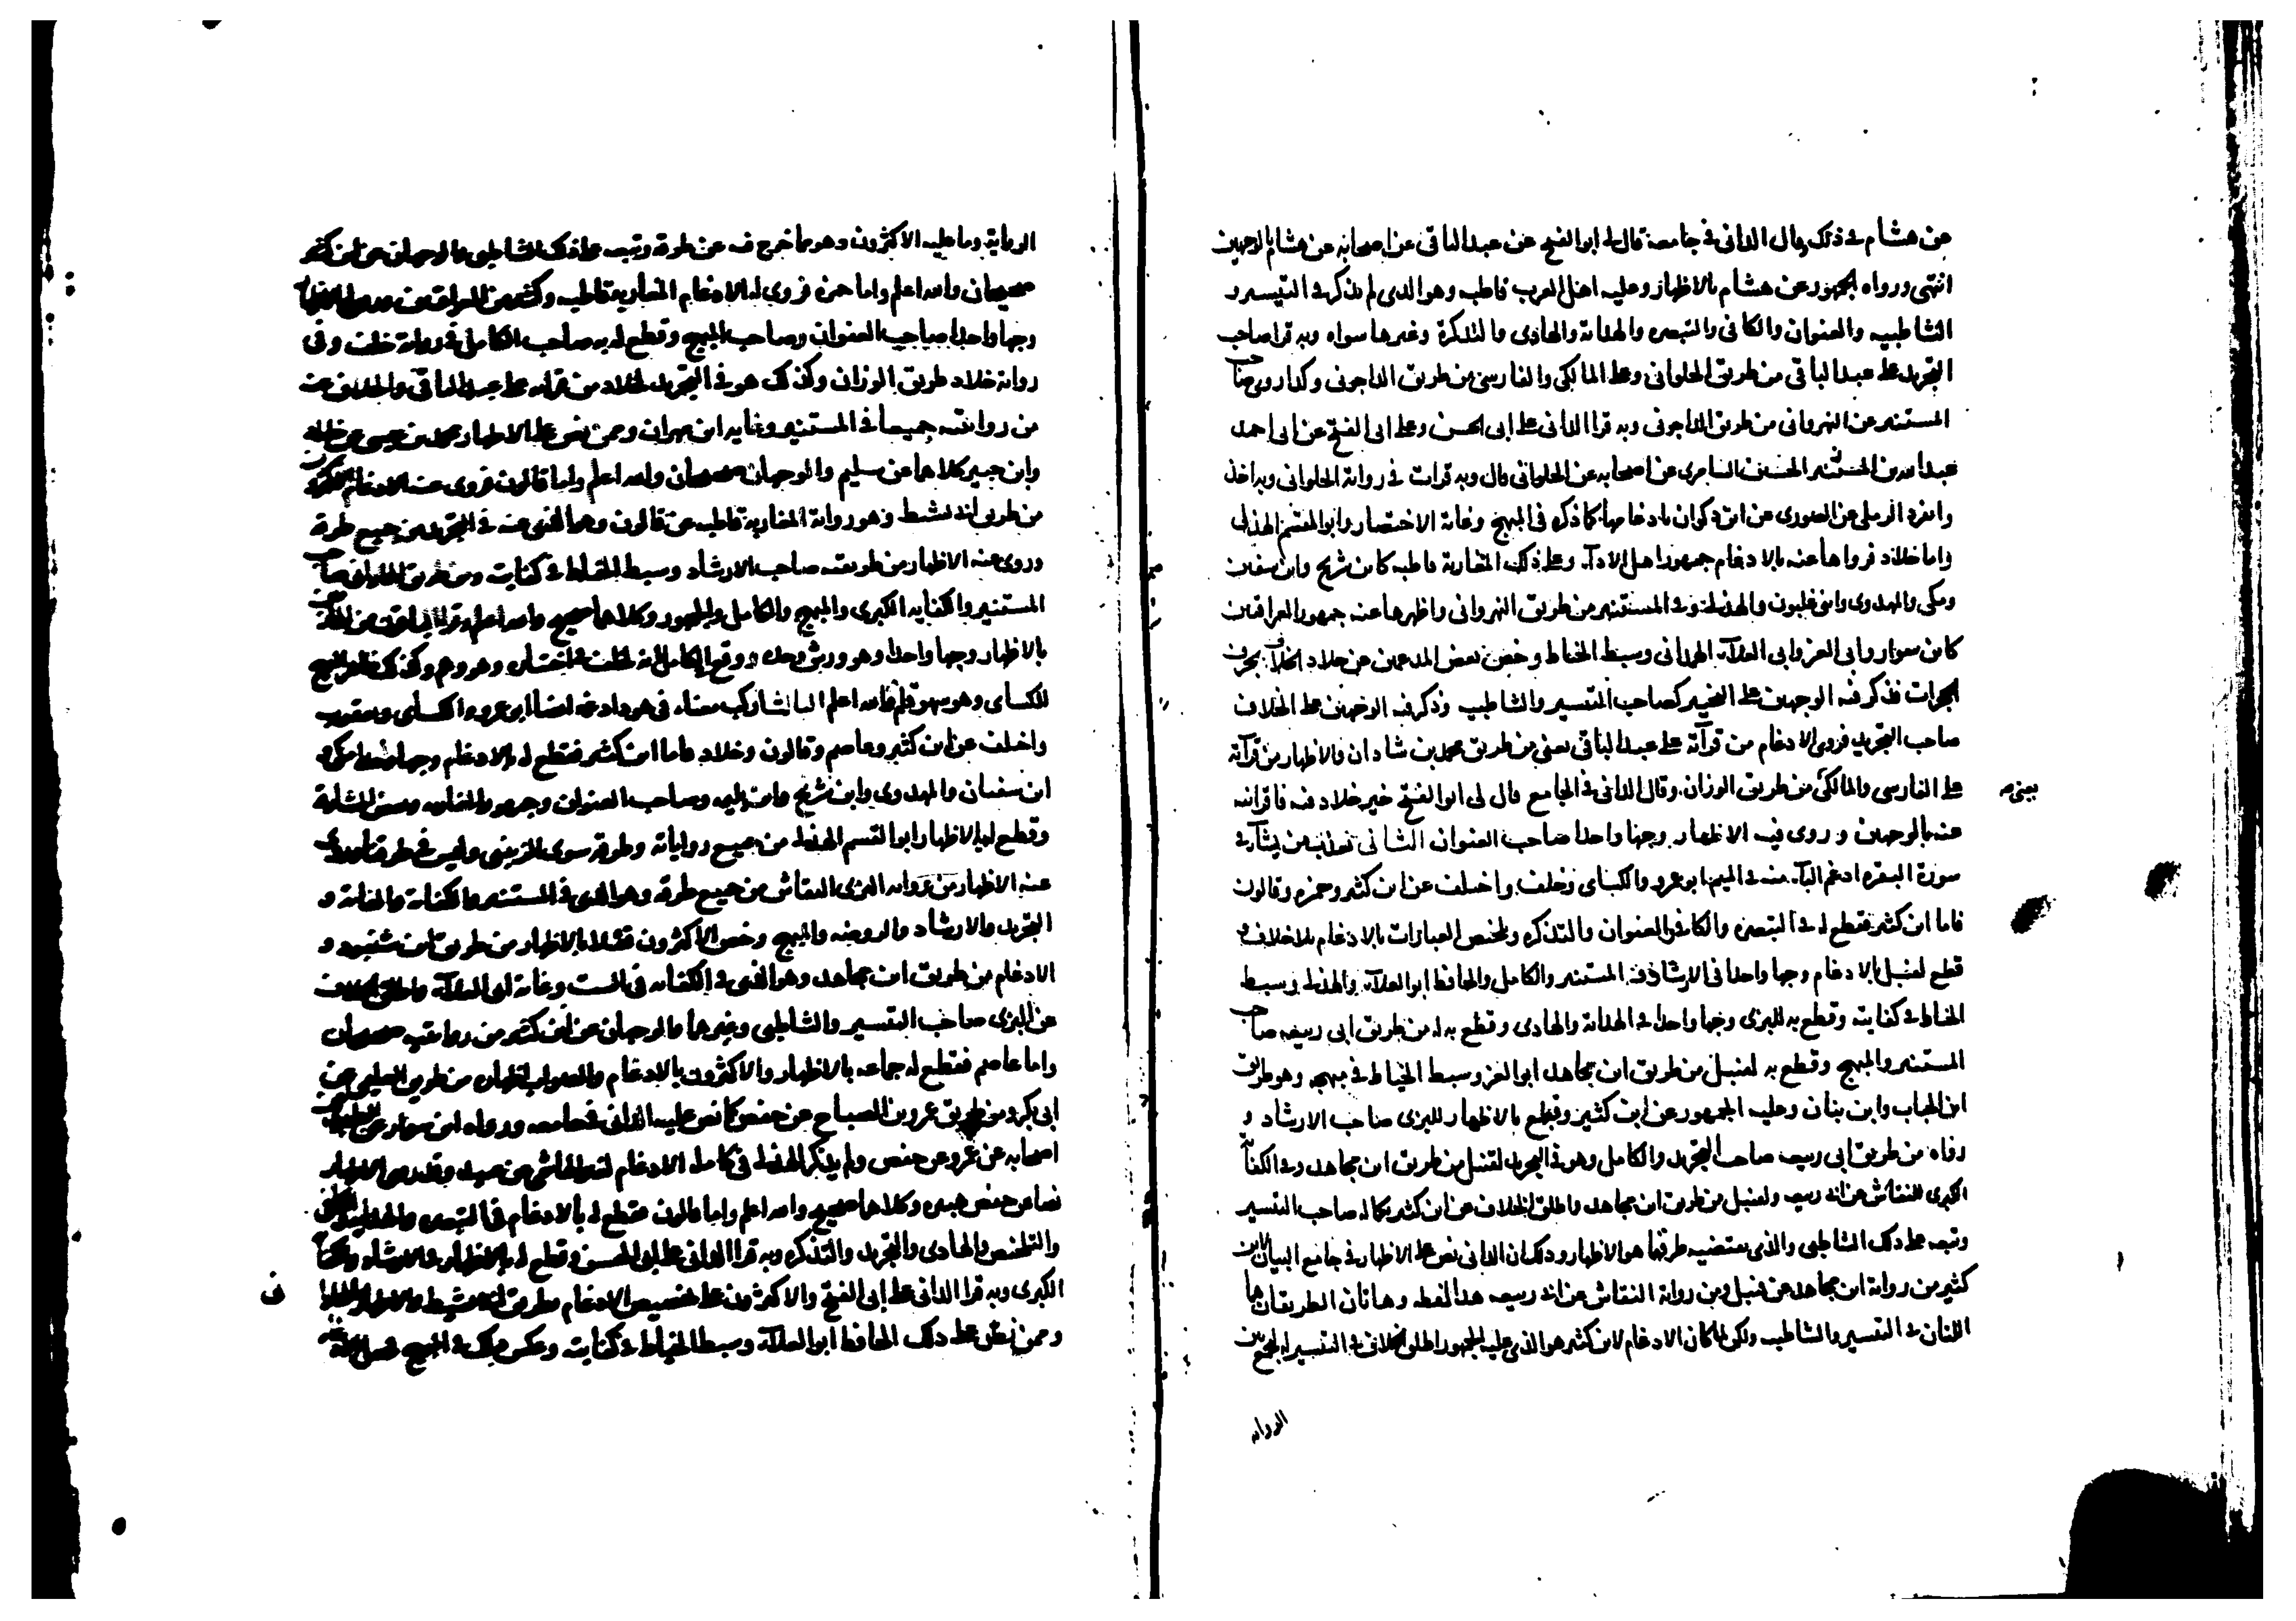 عن هشام في ذلك وقال الداني في جامعه قال لي ابو الفتح عن عبد الباقي عن اصحابه عن هشام بالوجهين
انتهى ورواه الجمهور عن هشام بالاظهار وعليه اهل الغرب قاطبه وهو الذي لم يذكر في التيسير و
الشاطبيه والعنوان والكافي والتبصره والهدايه والهادي والتذكرة وغيرها سواه وبه قرا صاحب
التجريد على عبد الباقي من طريق الحلواني وعلى المالكي والفارسي من طريق الداجوني وكذا روى صاحب
المستنير عن النهرواني من طريق الداجوني وبه قرا الداني على ابي الحسن وعلى ابي الفتح عن ابي احمد
عبد الله بن الحسين السامري عن اصحابه عن الحلواني قال وبه قرات في رواية الحلواني وبه اخذ
وانفرد الرملي عن الصوري عن ابن ذكوان بادغامها كما ذكره في المبهج وغاية الاختصار وابو القسم الهذلي
واما خلاد فرواها عنه بالادغام جمهور اهل الادآ وعلى ذلك المغاربة قاطبه كابن شريح وابن سفين
ومكي والمهدوي وابن غلبون والهذلي وفي المستنير من طريق النهرواني واظهرها عنه جمهور العراقيين
كابن سوار وابي العز وابي العلآء الهمداني وسبط الخياط وخص بعض المدغمين عن خلاد الخلاف بحرف
الحجرات فذكر فيه الوجهين على التخيير كصاحب التيسير والشاطبيه وذكر فيه الوجهين على الخلاف
صاحب التجريد فروى الادغام من قرآته على عبد الباقي يعني من طريق محمد بن شاذان والاظهار من قرآته
على الفارسي والمالكي من طريق الوزان وقال الداني في الجامع قال لي ابو الفتح خير خلاد فيه فاقرانيه
يعني من
عنه بالوجهين وروى فيه الاظهار وجها واحدا صاحب العنوان الثاني يعذب من يشآء في
سورة البقره ادغم البآ منه في الميم ابو عمرو والكساي وخلف واختلف عن ابن كثير وحمزه وقالون
فاما ابن كثير فقطع له في التبصره والكافي والعنوان والتذكره وتلخيص العبارات بالادغام بلا خلاف و
قطع لقنبل بالادغام وجها واحدا في الارشاد في المستنير والكامل والحافظ ابو العلآء والهذلي وسبط
الخياط في كفايته وقطع به للبزي وجها واحدا في الهداية والهادي وقطع به له من طريق ابي ربيعه صاحب
المستنير والمبهج وقطع به لقنبل من طريق ابن مجاهد ابو العز وسبط الخياط في مبهجه وهو طريق
ابن الحباب وابن بنان وعليه الجمهور عن ابن كثير وقطع بالاظهار للبزي صاحب الارشاد و
رواه من طريق ابي ربيعه صاحب التجريد والكامل وهو في التجريد لقنبل من طريق ابن مجاهد وفي الكفاية
الكبرى للنقاش عن ابي ربيعه ولقنبل من طريق ابن مجاهد واطلق الخلاف عن ابن كثير بكماله صاحب التيسير
وتبعه على ذلك الشاطبي والذي يقتضيه طرقهما هو الاظهار وذلك ان الداني نص على الاظهار في جامع البيان لابن
كثير من رواية ابن مجاهد عن قنبل ومن رواية النقاش عن ابي ربيعه هذا لفظه وهاتان الطريقان هما
اللتان في التيسير والشاطبيه ولكن لما كان الادغام لابن كثير هو الذي عليه الجمهور اطلق الخلاف في التيسير ليجمع بين
الرواية
الرواية وما عليه الاكثرون وهو مما خرج فيه عن طرقه وتبعه على ذلك الشاطبي والوجهان عن ابن كثير
صحيحان والله اعلم واما حمزه فروى له الادغام المغاربه قاطبه وكثير من العراقيين
وجها واحدا صاحب العنوان وصاحب المبهج وقطع له به صاحب الكامل في رواية خلف وفي
رواية خلاد طريق الوزان وكذلك هو في التجريد لخلاد من قرآته على عبد الباقي والخلاف عنه
من روايتيه جميعا في المستنير وغايه ابن مهران وممن نص على الاظهار محمد بن عيسى عن خلاد
وابن جبير كلاهما عن سليم والوجهان صحيحان والله اعلم واما قالون فروى عنه الادغام
من طريق ابي نشيط وهو رواية المغاربه قاطبه عن قالون وهو الذي عنه في التجريد من جميع طرقه
وروى عنه الاظهار من طريقيه صاحب الارشاد وسبط الخياط في كفايته ومن طريق الحلواني صاحب
المستنير والكفايه الكبرى والمبهج والكامل والجمهور وكلاهما صحيح والله اعلم وقرا الباقون من
بالاظهار وجها واحدا وهو ورش وحده ووقع في الكامل انه لخلف في اختياره وهو وهم وكذلك ظاهر المبهج
للكساي وهو سهو قلم والله اعلم الثالث اركب معنا في هود ادغمه ايضا ابو عمرو والكساي ويعقوب
واختلف عن ابن كثير وعاصم وقالون وخلاد فاما ابن كثير فقطع له بالادغام وجها واحدا مكي و
ابن سفيان والمهدوي وابن شريح وابن بليمه وصاحب العنوان وجمهور المغاربه وبعض المشارقة
وقطع له بالاظهار ابو القسم الهذلي من جميع رواياته وطرقه سوى الزينبي وليس في طرقنا وروى
عنه الاظهار من رواية البزي النقاش من جميع طرقه وهو الذي في المستنير والكفاية والغاية و
التجريد والارشاد والروضه والمبهج وخص الاكثرون قنبلا بالاظهار من طريق ابن شنبوذ و
الادغام من طريق ابن مجاهد وهو الذي في الكفايه في الست وغاية ابي العلآء واطلق الخلاف
عن البزي صاحب التيسير والشاطبي وغيرهما والوجهان عن ابن كثير من روايتيه صحيحان
واما عاصم فقطع له جماعه بالاظهار والاكثرون بالادغام والصواب اظهاره من طريق العليمي عن
ابي بكر ومن طريق عمرو بن الصباح عن حفص كما نص عليه الداني في جامعه ورواه ابن سوار عن الطبري عن
اصحابه عن عمرو عن حفص ولم يذكر الهذلي في كامله الادغام لغير الهاشمي عن عبيد وقد روى الاظهار
نصا عن حفص هبيره وكلاهما صحيح والله اعلم واما قالون فقطع له بالادغام في التبصره والهدايه والكافي
والتلخيص والهادي والتجريد والتذكره وبه قرا الداني على ابي الحسن وقطع له بالاظهار في الارشاد والكفاية
الكبرى وبه قرا الداني على ابي الفتح والاكثرون على تخصيص الادغام بطريق ابي نشيط والاظهار بالحلواني
وممن نص على ذلك الحافظ ابو العلآء وسبط الخياط في كفايته وعكس ذلك في المبهج